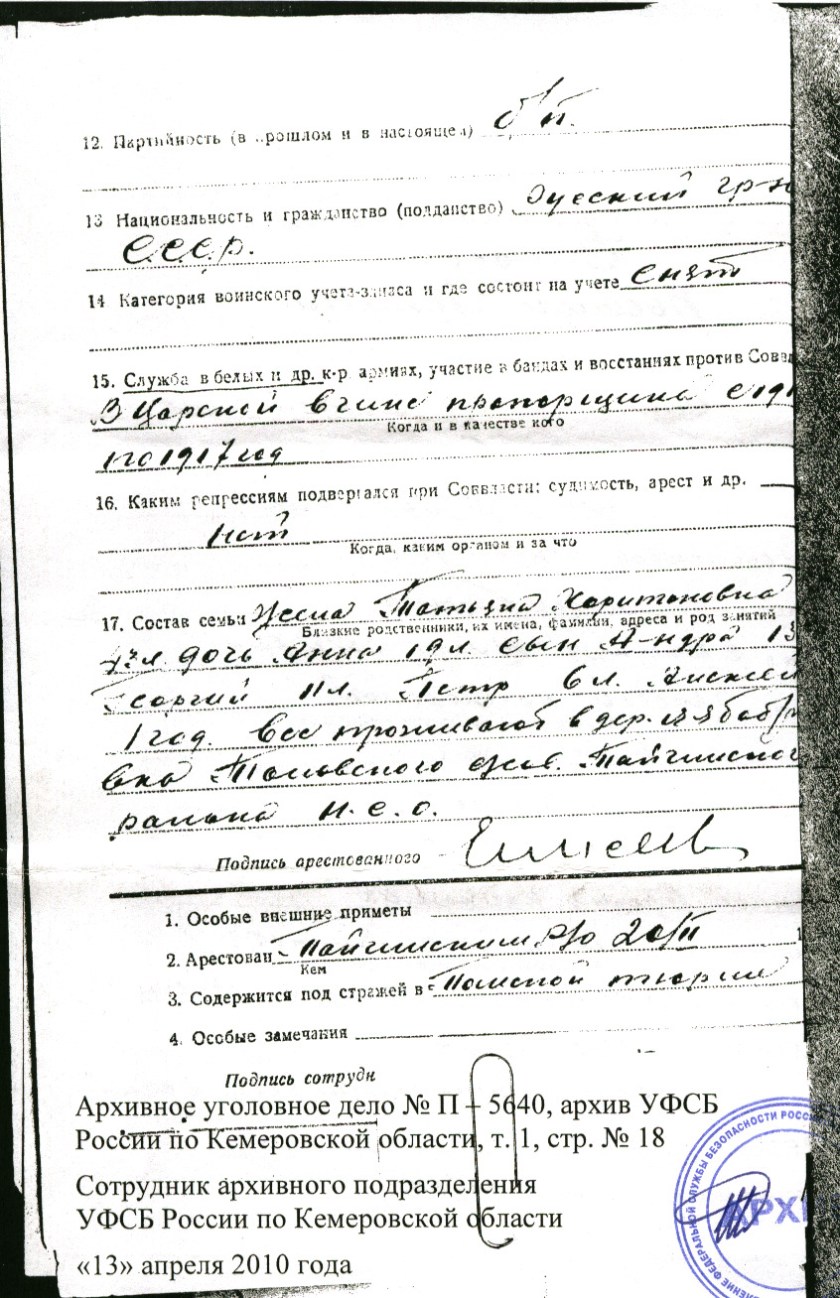 12. Партийность (в прошлом и в настоящем) б/п.
13 Национальность и гражданство (подданство) Русский гр-н
С.С.С.Р.
14 Категория воинского учета-запаса и где состоит на учете снят
15. Служба в белых и др. к-р. армиях, участие в бандах и восстаниях против Совв
В Царской в чине прапорщика с 191
Когда и в качестве кого
по 1917 год
16. Каким репрессиям подвергался при Соввласти: судимость, арест и др.
нет
Когда, каким органом и за что
17. Состав семьи Жена Татьяна Харитоновна
Близкие родственники, их имена, фамилии, адреса и род занятий
дочь Анна 19 л. сын 13
Георгий 11 л. Петр 6 л. Алексей
1 год. Все проживают в дер.
Тайгинского
района Н.С.О.
Подпись арестованного Елисеев
1. Особые внешние приметы
2. Арестован Тайгинским Р/О 20/II 1
Кем
3. Содержится под стражей в Томской тюрьме
4. Особые замечания
Подпись сотрудн
Архивное уголовное дело № П – 5640, архив УФСБ
России по Кемеровской области, т. 1, стр. № 18
Сотрудник архивного подразделения
УФСБ России по Кемеровской области
«13» апреля 2010 года
ФЕДЕРАЛЬНОЙ СЛУЖБЫ БЕЗОПАСНОСТИ РОСС
АРХ